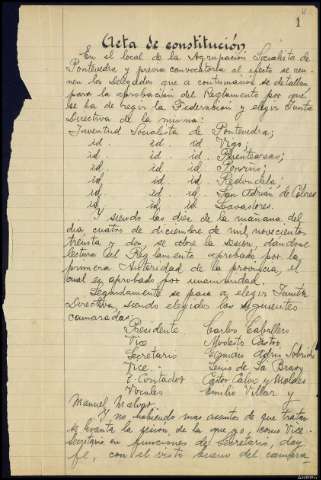 1
Acta de constitución
En el local de la Agrupación Socialista de
Pontevedra y previa convocatoria al efecto se reu-
nen los delegados que a continuación se detallan
para la aprobación del Reglamento por que
se ha de regir la Federación y elegir Junta
Directiva de la misma:
Juventud Socialista de Pontevedra;
id. id. id. Vigo;
id. id. id. Puenteareas;
id. id. id. Porriño;
id. id. id. Redondela;
id. id. id. San Adrián de Cobres
id. id. id. Lavadores.
Y siendo las diez de la mañana del
dia, cuatro de diciembre de mil novecientos
treinta y dos se abre la sesión, dandose
lectura del Reglamento aprobado por la
primera Autoridad de la provincia, el
cual es aprobado por unanimidad.
Seguidamente se pasa a elegir Junta
Directiva siendo elegidos los siguientes
camaradas:
Presidente Carlos Caballero
Vice Modesto Castro
Secretario Adrio Sobrido
Vice de la
T. Contador Castor y
Vocales Emilio Villar y
Manuel
Y no habiendo mas asuntos de que tratar
se levanta la sesión, de la que yo, como Vice-
Secretario en funciones de Secretario, doy
fe, con el visto bueno del camara-